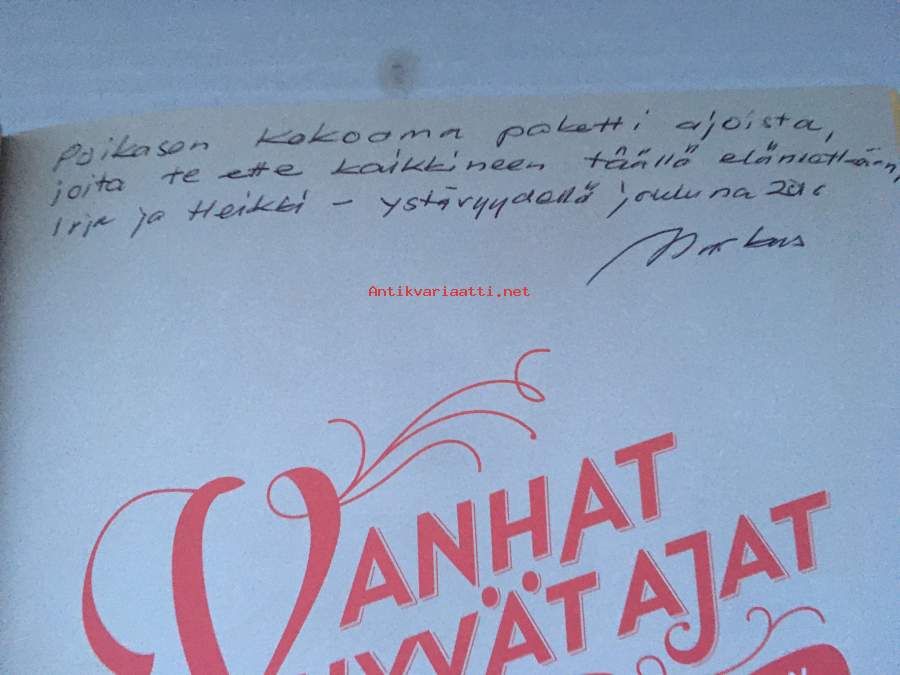 Poikason kokooma paketti ajoista,
joita te ette kaikkineen täällä
Irja ja Heikki - ystävyydellä jouluna
Markus
Antikvariaatti.net
VANHAT
HYVÄT AJAT